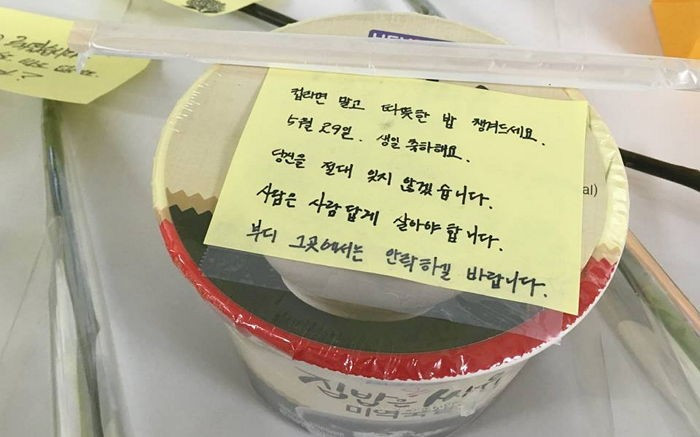 컵라면 말고 따뜻한 밥 챙겨드세요.
5월 29일. 생일 축하해요.
당신을 절대 잊지 않겠습니다.
사람은 사람답게 살아야 합니다.
부디 그곳에서는 안락하길 바랍니다.
al)
집밥은
미역국